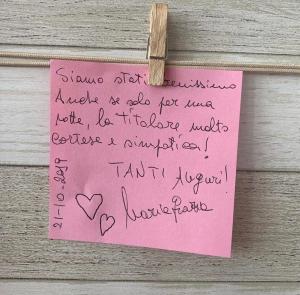 Siamo stati benissimo
Anche se solo per una
notte, la Titolare molto
cortese e simpatica!
TANTI Auguri!
Maria Grazia
21-10-2019